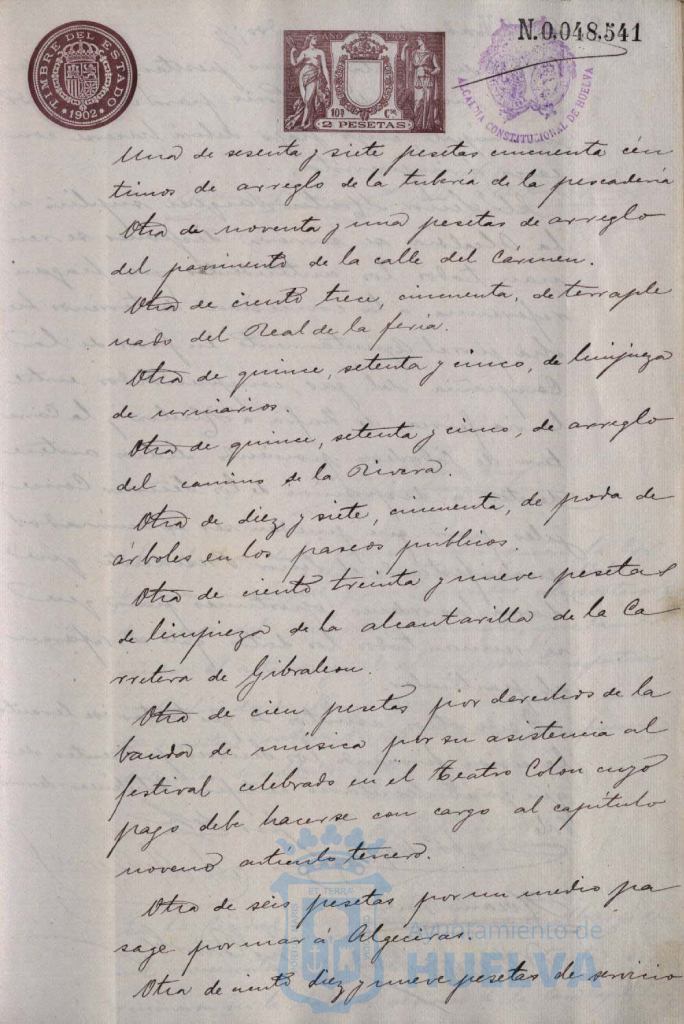 TIMBRE DEL ESTADO
1902
AÑO 1902
10ª Cse
2 PESETAS
N.0.048.541
ALCALDIA CONSTITUCIONAL DE HUELVA
Una de sesenta y siete pesetas cincuenta cén
timos de arreglo de la tubería de la pescadería
Otra de noventa y una pesetas de arreglo
del pavimento de la calle del Cármen.
Otra de ciento trece, cincuenta, de terraple
nado del Real de la feria.
Otra de quince, setenta y cinco, de limpieza
de urinarios.
Otra de quince, setenta y cinco, de arreglo
del camino de la Rivera.
Otra de diez y siete, cincuenta, de poda de
árboles en los paseos públicos.
Otra de ciento treinta y nueve pesetas
de limpieza de la alcantarilla de la Ca
rretera de Gibraleon.
Otra de cien pesetas por derechos de la
banda de música por su asistencia al
festival celebrado en el teatro Colon cuyo
pago debe hacerse con cargo al capítulo
noveno artículo tercero.
Otra de séis pesetas por un medio pa
sage por mar á Algeciras.
Otra de ciento diez y nueve pesetas de servicio
Ayuntamiento de
HUELVA